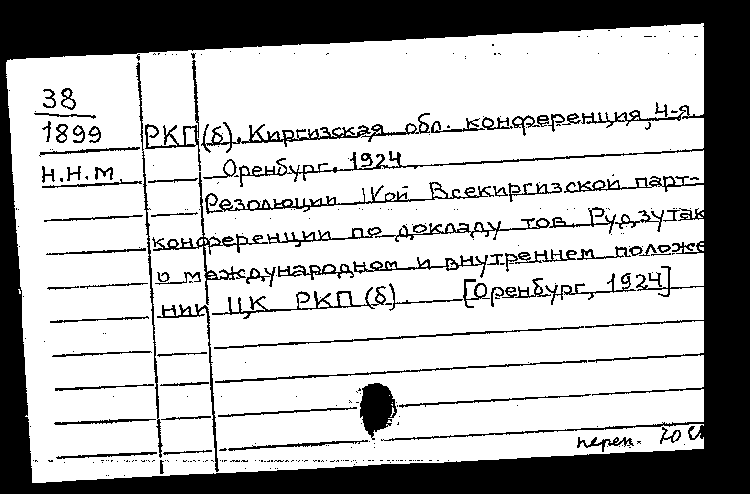 38
1899 РКП(б). Киргизская обл. конференция, 4-я.
н.н.м. Оренбург. 1924.
Резолюции IVой Всекиргизской парт-
конференции по докладу тов. Рудзутак
о международном и внутреннем положе
нии ЦК РКП(б). [Оренбург, 1924]
переп. 70